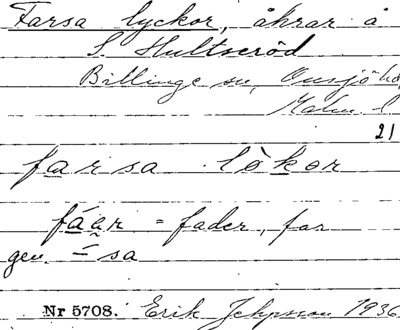 Farsa lyckor, åkrar å
S. Hultseröd
Billinge sn, Onsjö hd,
Malm. l
21
farsa lökor
fáer = fader, far
gen. = sa
Nr 5708. Erik Jeppsson 1936